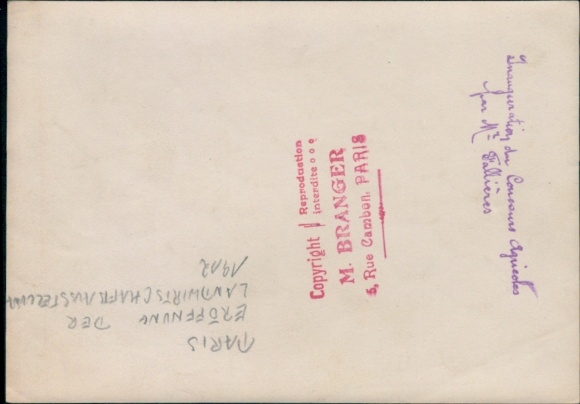 Inauguration du Concours Agricoles
par Mr Fallières
Copyright
Reproduction
interdite
M. BRANGER
5, Rue Cambon, PARIS
PARIS
ERÖFFNUNG DER
LANDWIRTSCHAFTLAUSSTELLUNG
1912